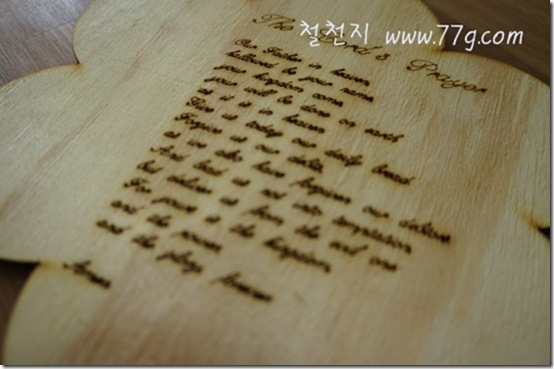 철천지 www.77g.com
The Lord's Prayer
Our Father in heaven,
hallowed be your name
your kingdom come
your will be done on earth
as it is in heaven
Give us today our daily bread
Forgive us our debts
as we also have forgiven our debtors
And lead us not into temptation
But deliver us from the evil one
For yours is the kingdom
and the power
and the glory forever
Amen